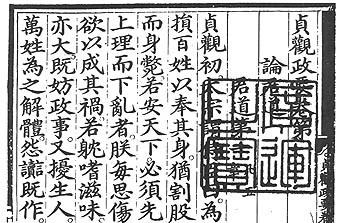 貞觀政要卷第
論
君道第一
貞觀初太宗謂 為
損百姓以奉其身猶割股
而身斃若安天下必須先
上理而下亂者朕每思傷
欲以成其禍若躭嗜滋味
亦大既妨政事又擾生人
萬姓為之解體怨讟既作